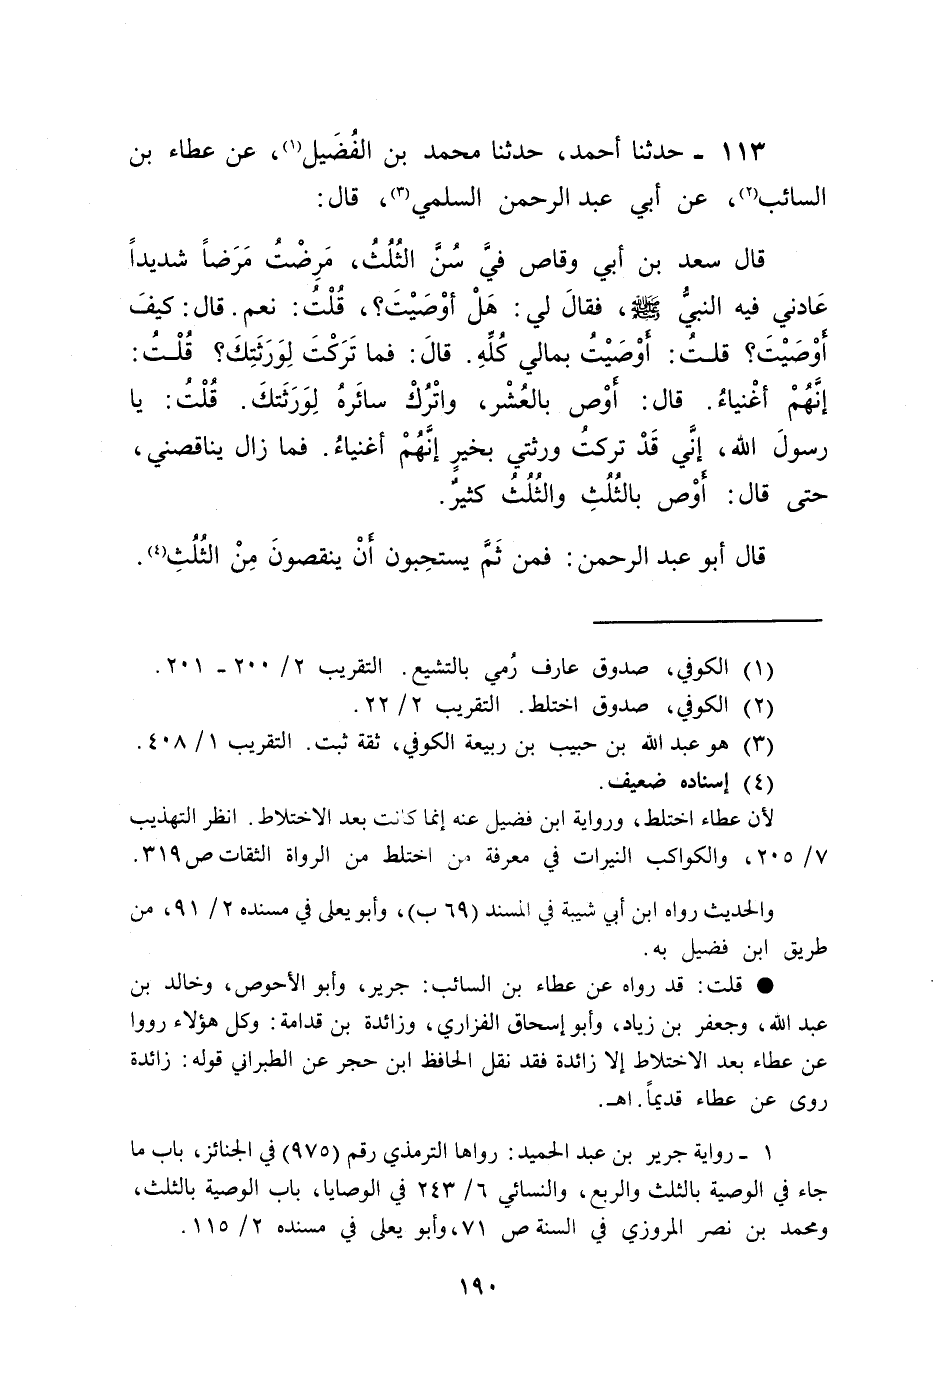 ١١٣ ـ حدثنا أحمد، حدثنا محمد بن الفُضَيل(١)، عن عطاء بن
السائب(٢)، عن أبي عبد الرحمن السلمي(٣)، قال:
قال سعد بن أبي وقاص فيَّ سُنَّ الثُلُثُ، مَرِضْتُ مَرَضاً شديداً
عَادني فيه النبيُّ ﷺ، فقالَ لي: هَلْ أوْصَيْتَ؟، قُلْتُ: نعم. قال: كيفَ
أَوْصَيْتَ؟ قلتُ: أَوْصَيْتُ بمالي كُلِّهِ. قالَ: فما تَرَكْتَ لِوَرَثَتِكَ؟ قُلْتُ:
إنَّهُمْ أغْنياءُ. قال: أَوْصِ بالعُشْرِ، واتْرُكْ سائرَهُ لِوَرَثَتكَ. قُلْتُ: يا
رسولَ الله، إنَّي قَدْ تركتُ ورثتي بخيرٍ إنَّهُمْ أغنياءُ. فما زال يناقصني،
حتى قال: أَوْصِ بالثُلُثِ والثُلُثُ كثيرٌ.
قال أبو عبد الرحمن: فمن ثَمَّ يستحِبون أَنْ ينقصونَ مِنْ الثُلُثِ(٤).
(١) الكوفي، صدوق عارف رُمي بالتشيع. التقريب ٢/ ٢٠٠ ـ ٢٠١.
(٢) الكوفي، صدوق اختلط. التقريب ٢/ ٢٢.
(٣) هو عبد الله بن حبيب بن ربيعة الكوفي، ثقة ثبت. التقريب ١/ ٤٠٨.
(٤) إسناده ضعيف.
لأن عطاء اختلط، ورواية ابن فضيل عنه إنما كانت بعد الاختلاط. انظر التهذيب
٧/ ٢٠٥، والكواكب النيرات في معرفة من اختلط من الرواة الثقات ص٣١٩.
والحديث رواه ابن أبي شيبة في المسند (٦٩ ب)، وأبو يعلى في مسنده ٢/ ٩١، من
طريق ابن فضيل به.
● قلت: قد رواه عن عطاء بن السائب: جرير، وأبو الأحوص، وخالد بن
عبد الله، وجعفر بن زياد، وأبو إسحاق الفزاري، وزائدة بن قدامة: وكل هؤلاء رووا
عن عطاء بعد الاختلاط إلا زائدة فقد نقل الحافظ ابن حجر عن الطبراني قوله: زائدة
روى عن عطاء قديماً. اهـ.
١ ـ رواية جرير بن عبد الحميد: رواها الترمذي رقم (٩٧٥) في الجنائز، باب ما
جاء في الوصية بالثلث والربع، والنسائي ٦/ ٢٤٣ في الوصايا، باب الوصية بالثلث،
ومحمد بن نصر المروزي في السنة ص ٧١، وأبو يعلى في مسنده ٢/ ١١٥.
١٩٠